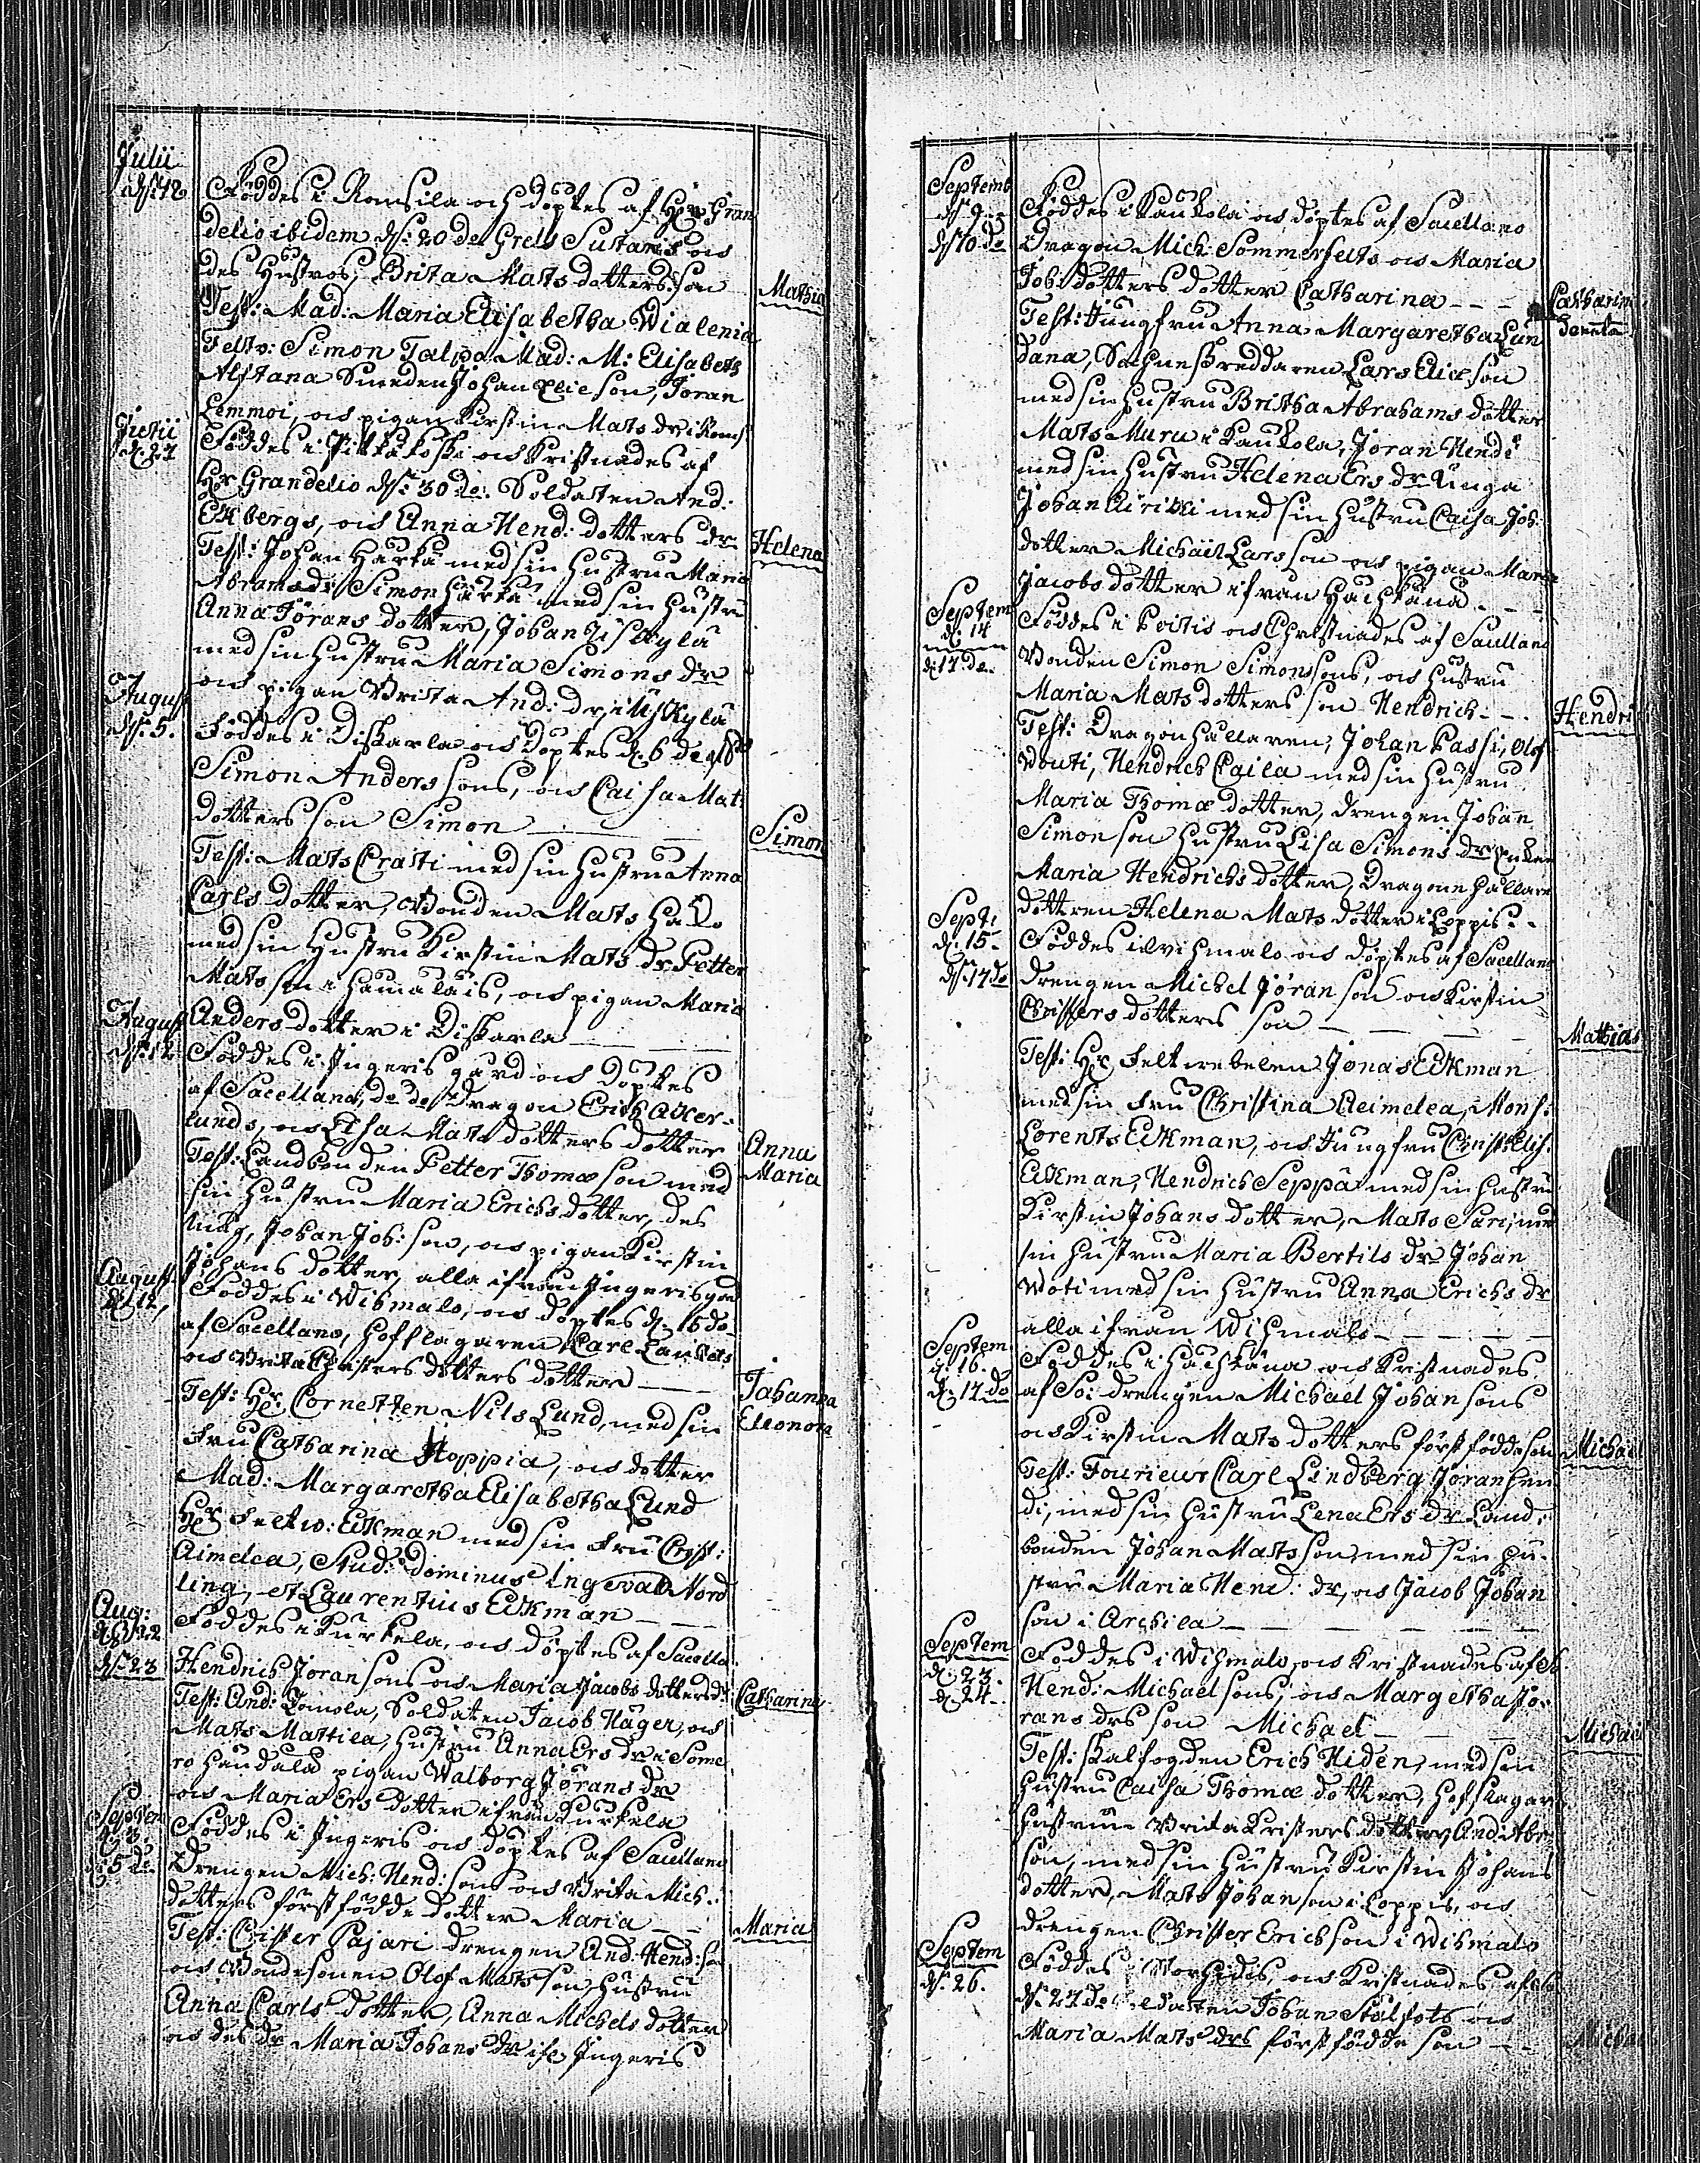 Julii
d: 12
Föddes i Romsila och döptes af H:r Gran
delio ibidem d: 20 de Grels Sutaris och
des Hustros, Brita Matsdotters son
Mathia
Test: Mad: Maria Elisabetha Wialenia
Feltv: Simon Talpo Mad: M: Elisabeth
Alftana Smeden Johan Elieson, Jöran
Lemmoi, och pigan Kirstin Mats dr i Roms
Julii
d: 27
Föddes i Pitkäkoski och Kristnades af
H:r Grandelio d: 30 de: Soldaten And:
Ekbergs, och Anna Hend: dotters dr
Helena
Test: Johan Härkä med sin hustru Maria
Abramsdr Simon Härkä med sin hustru
Anna Jörans dotter, Johan Isokylä
med sin hustru Maria Simons dr
och pigan Brita And: dr, i Isokylä
August
d: 5.
Föddes i Diskarla och döptes d: 6 de
Simon Anders sons, och Caisa Mat:
dotters son Simon
Simon
Test: Mats Crati med sin hustru Anna
Carls dotter, Bonden Mats
med sin Hustru Kirstin Mats dr Petter
Mats son i Hämäläis, och pigan Maria
Anders dotter i Diskarla
August
d: 12
Föddes i Ingeris gård och döptes
af Sacellano, de de Dragon Erich Åker-
lunds, och Lisa Mats dotters dotter
Anna
Maria
Test: Landbonden Petter Thomæ son med
sin hustru Maria Erichs dotter, des
måg, Johan Joh: son, och pigan Kirstin
Johans dotter, alla ifrån Ingerisgård
August
d: 12,
Föddes i Wihmalo, och döptes d: 15 do
af Sacellano, hofslagaren Carl
och Brita Christers dotters dotter
Johanna
Eleonora
Test: H:r Cornetten Nils Lund, med sin
Fru Catharina Hoppia, och dotter
Mad: Margaretha Elisabetha Lund
H:r Feltw: Ekman med sin Fru Christ:
Aimelea, Stud: Dominus Ingevald Nord
ling, et Laurentius Ekman
Aug:
d: 22
d: 23
Föddes i Kurkela, och döptes af Sacella:
Hendrich Jöransons och Maria Jacobs dotters dr
Catharina
Test: And: Lemola, Soldaten Jacob Häger, och
Mats Mattila, hustru Anna Ers dr i Some
ro Häntälä pigan Walborg Jörans dr
och Maria Ers dotter ifrån Kurkela
Septem
d: 3.
d: 5 de
Föddes i Ingeris och döptes af Sacellano
Drengen Mich: Hend: sons och Brita Mich:
dotters förstfödde dotter Maria
Maria
Test: Crister Pajari drengen And: Hend: son
och Bondesonen Olof Matsson, hustru
Anna Carls dotter, Anna Michels dotter
och des dr Maria Johans dr ifr Ingeris
Septemb
d: 9
d: 10 de
Föddes i Kaukola och döptes af Sacellano
Dragon Mich: Sommerfelts och Maria
Joh: dotters dotter Catharina
Catharina
Test: Jungfru Anna Margaretha Lun
dana, Sochneskreddaren Lars Elieson
med sin hustru Britha Abrahams dotter
Mats Muru i Kaukola, Jöran Hendi
med sin hustru Helena Ers dr Unga
Johan med sin hustru Caisa Joh:
dotter Michäil Larsson och pigan Maria
Jacobs dotter ifrån Hachkäna
Septem
d: 14
d: 17 de.
Föddes i Poitis och Christnades af Sacellano
Bonden Simon Simonssons, och hustru
Maria Mats dotters son Hendrich
Hendrich
Test: Dragon hållaren, Johan Passi, Olof
Wouti, Hendrich Caila med sin hustru
Maria Thomæ dotter, drengen Johan
Simonson hustru Lisa Simons dr enkan
Maria Hendrichs dotter, Dragone hållare
dottren Helena Mats dotter i Loppis
Sept:
d: 15.
d: 17 do
Föddes i Wihmalo och döptes af Sacellano
drengen Michel Jöranson och Kirstin
Christers dotters son
Mathias
Test: H:r Feltwebelen Jonas Ekman
med sin Fru Christina Aeimelea, Mons:
Lorents Ekman, och Jungfru Christ: Elis:
Ekman, Hendrich Seppä med sin hustru
Kirstin Johans dotter, Mats Sari, med
sin hustru Maria Bertils dr Johan
Woti med sin hustru Anna Erichs dr
alla ifrån Wihmalo
Septem
d: 16.
d: 17 do
Föddes i Hachkäna och Kristnades
af Sa: drengen Michael Johansons
och Kirstin Mats dotters förstfödde son
Michael
Test: Fourieur Carl Lindberg Jöran Hen
di, med sin hustru Lena Ers dr Land-
bonden Johan Matsson med sin hu-
stru Maria Hend: dr, och Jacob Johan
son i Arckila
Septem
d: 23.
d: 24.
Föddes i Wihmalo, och Kristnades af S:
Hend: Michaelsons, och Margetha Jö-
rans drs son Michael
Michael
Test: Skalfogden Erich Hiden, med sin
hustru Caisa Thomæ dotter, hofslagare
hustrun Brita Kristers dotter, And: Abr:
son, med sin hustru Kirstin Johans
dotter, Mats Johanson i Loppis, och
drengen Christer Erichson i Wihmalo
Septem
d: 26.
Föddes i Storhidis, och Kristnades af S:
d: 27 de Soldaten Johan Stålfots och
Maria Mats drs förstfödde son
Michael